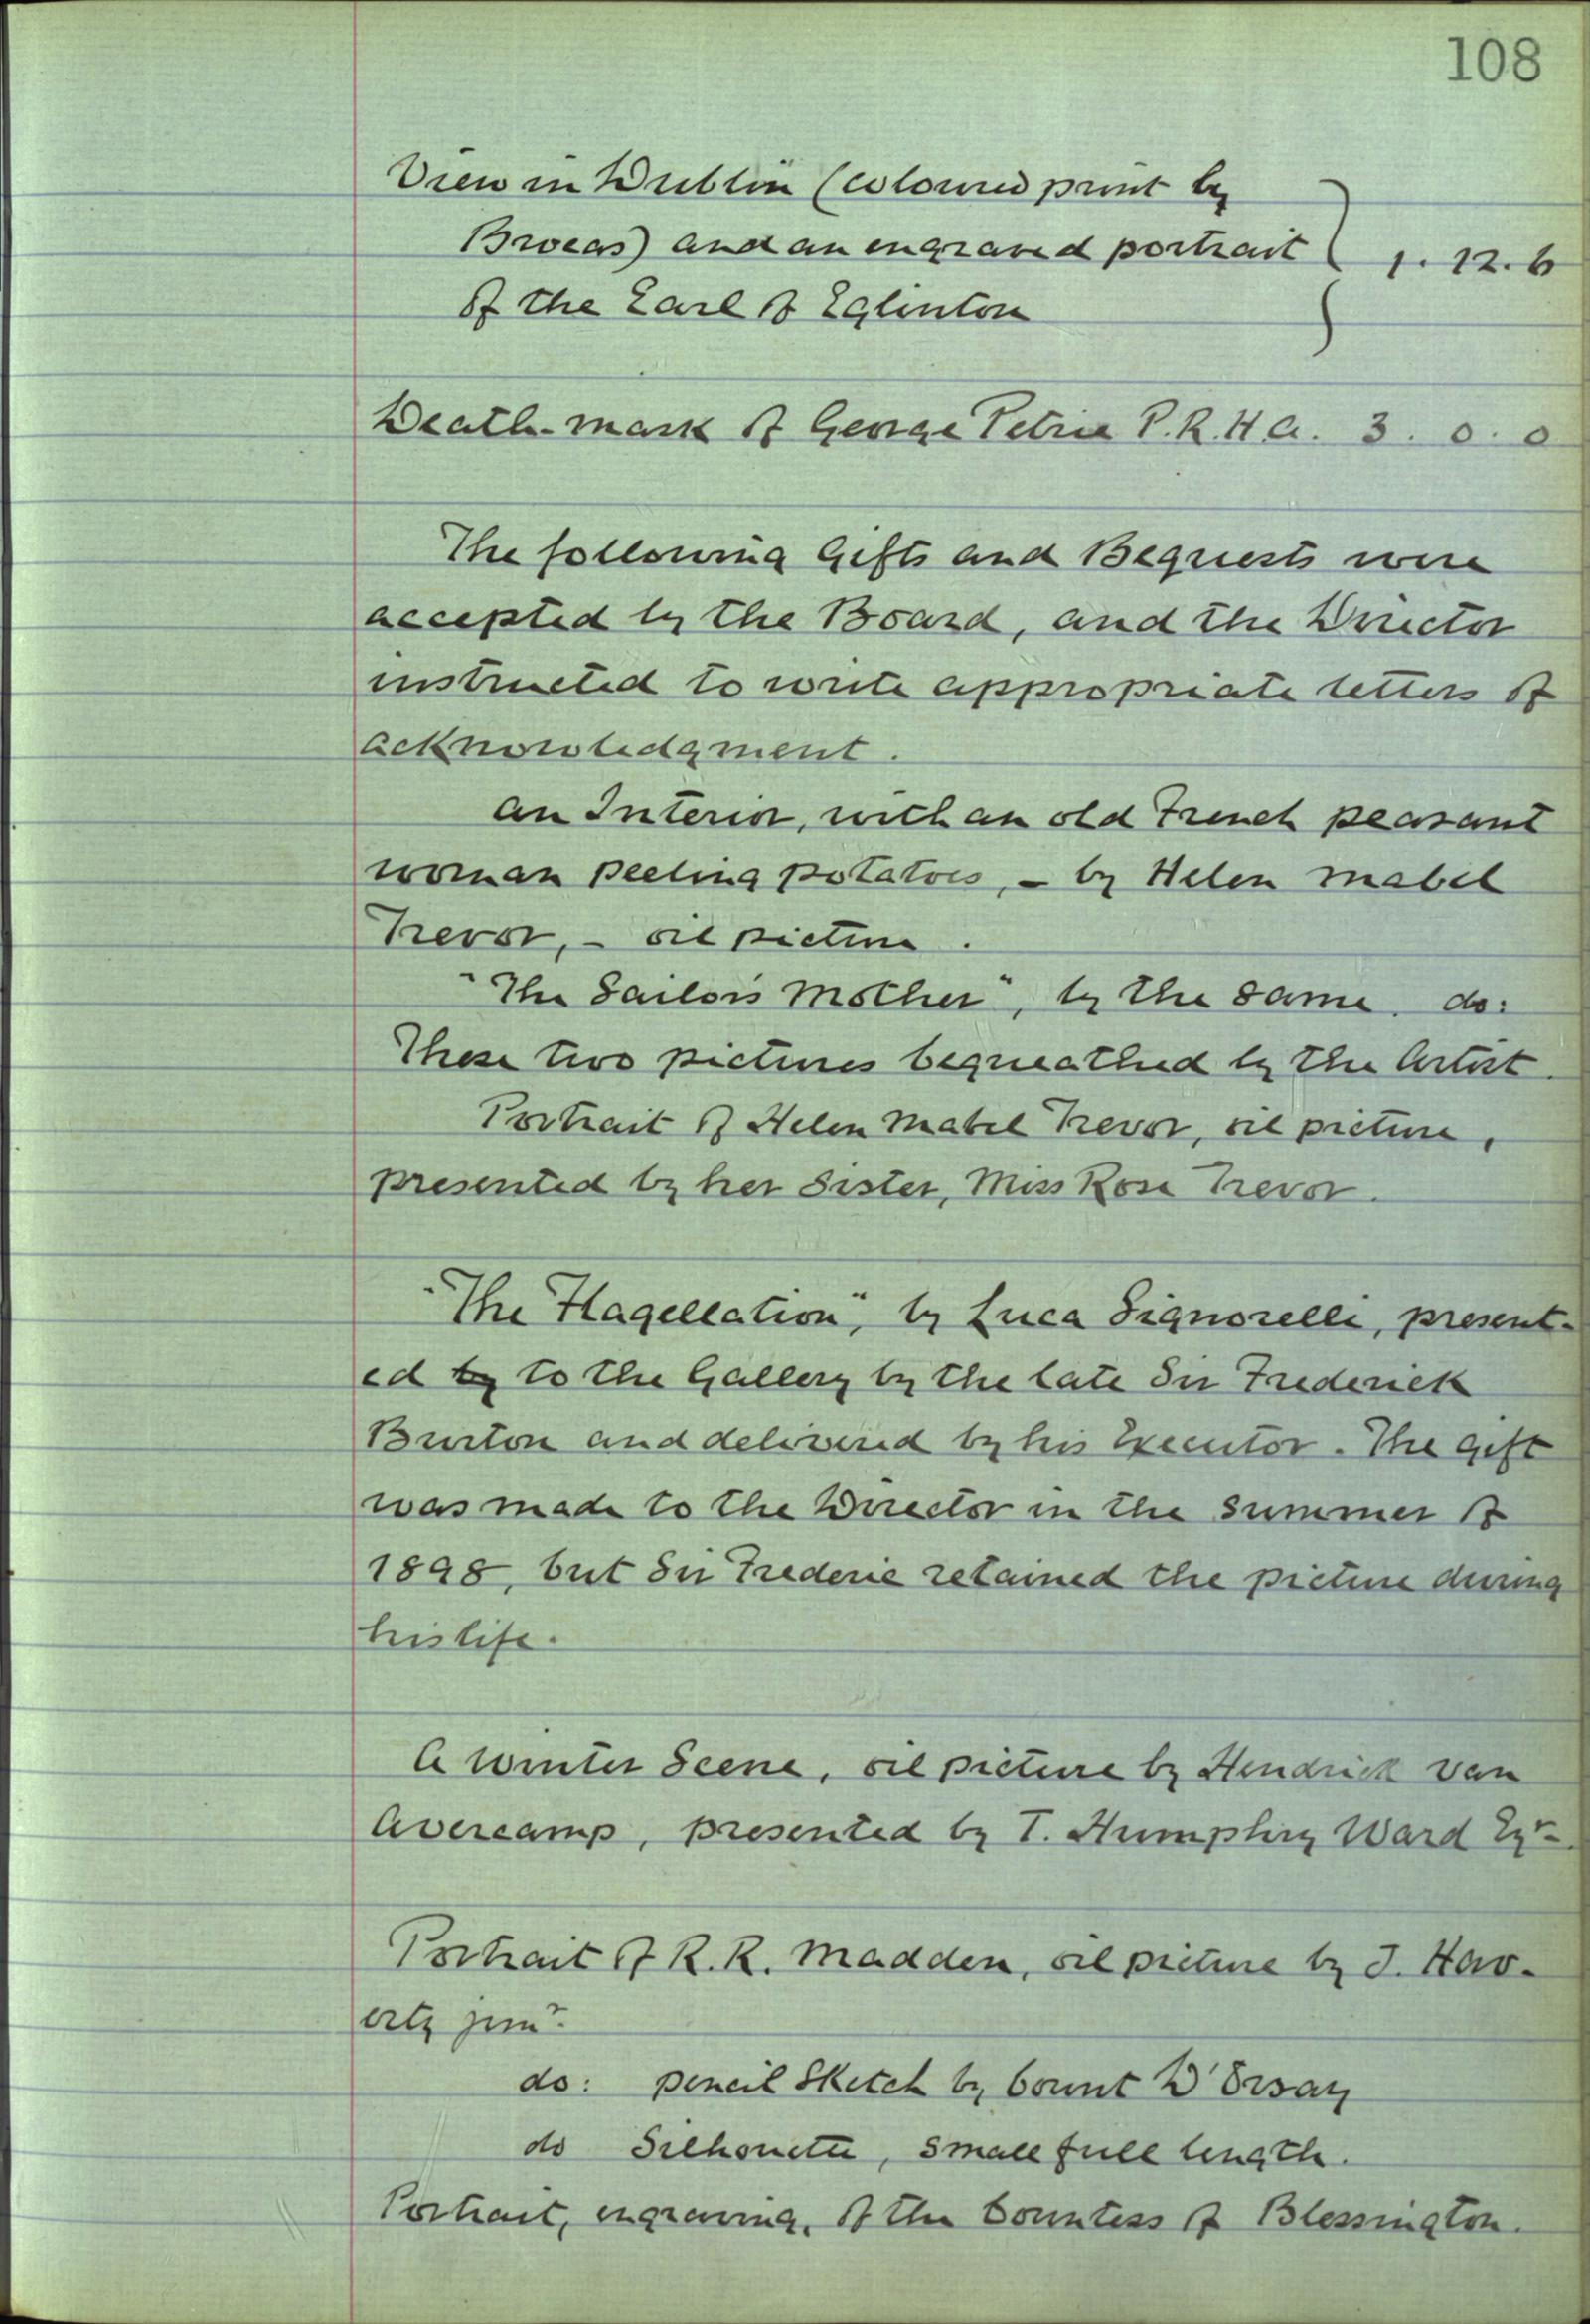 108
View in Dublin (coloured print by
Brocas) and an engraved portrait } 1. 12. 6
of the Earl of Eglinton
Death-mask of George Petrie P.R.H.A. 3. 0. 0
The following Gifts and Bequests were
accepted by the Board, and the Director
instructed to write appropriate letters of
acknowledgment.
An Interior, with an old French peasant
woman peeling potatoes, - by Helen Mabel
Trevor, - oil picture.
"The Sailor's Mother", by the same. do:
These two pictures bequeathed by the Artist.
Portrait of Helen Mabel Trevor, oil picture,
presented by her Sister, Miss Rose Trevor.
"The Flagellation", by Luca Signorelli, present-
ed by to the Gallery by the late Sir Frederick
Burton and delivered by his Executor. The gift
was made to the Director in the summer of
1898, but Sir Frederic retained the picture during
his life.
A Winter Scene, oil picture by Hendrick van
Avercamp, presented by T. Humphry Ward Esqr.
Portrait of R.R. Madden, oil picture by J. Hav-
erty junr.
do: pencil sketch by Count D'Orsay
do Silhouette, small full length.
Portrait, engraving, of the Countess of Blessington.